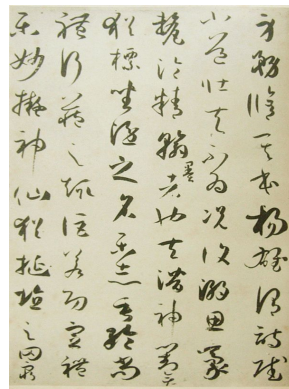 身務脩其本楊雄謂詩賦
小道壯夫不為況復溺思豪
釐淪精翰墨者也夫潛神對奕
猶標坐隱之名樂志垂綸尚
體行藏之趣詎若功定禮
樂妙擬神仙猶挻埴之罔窮